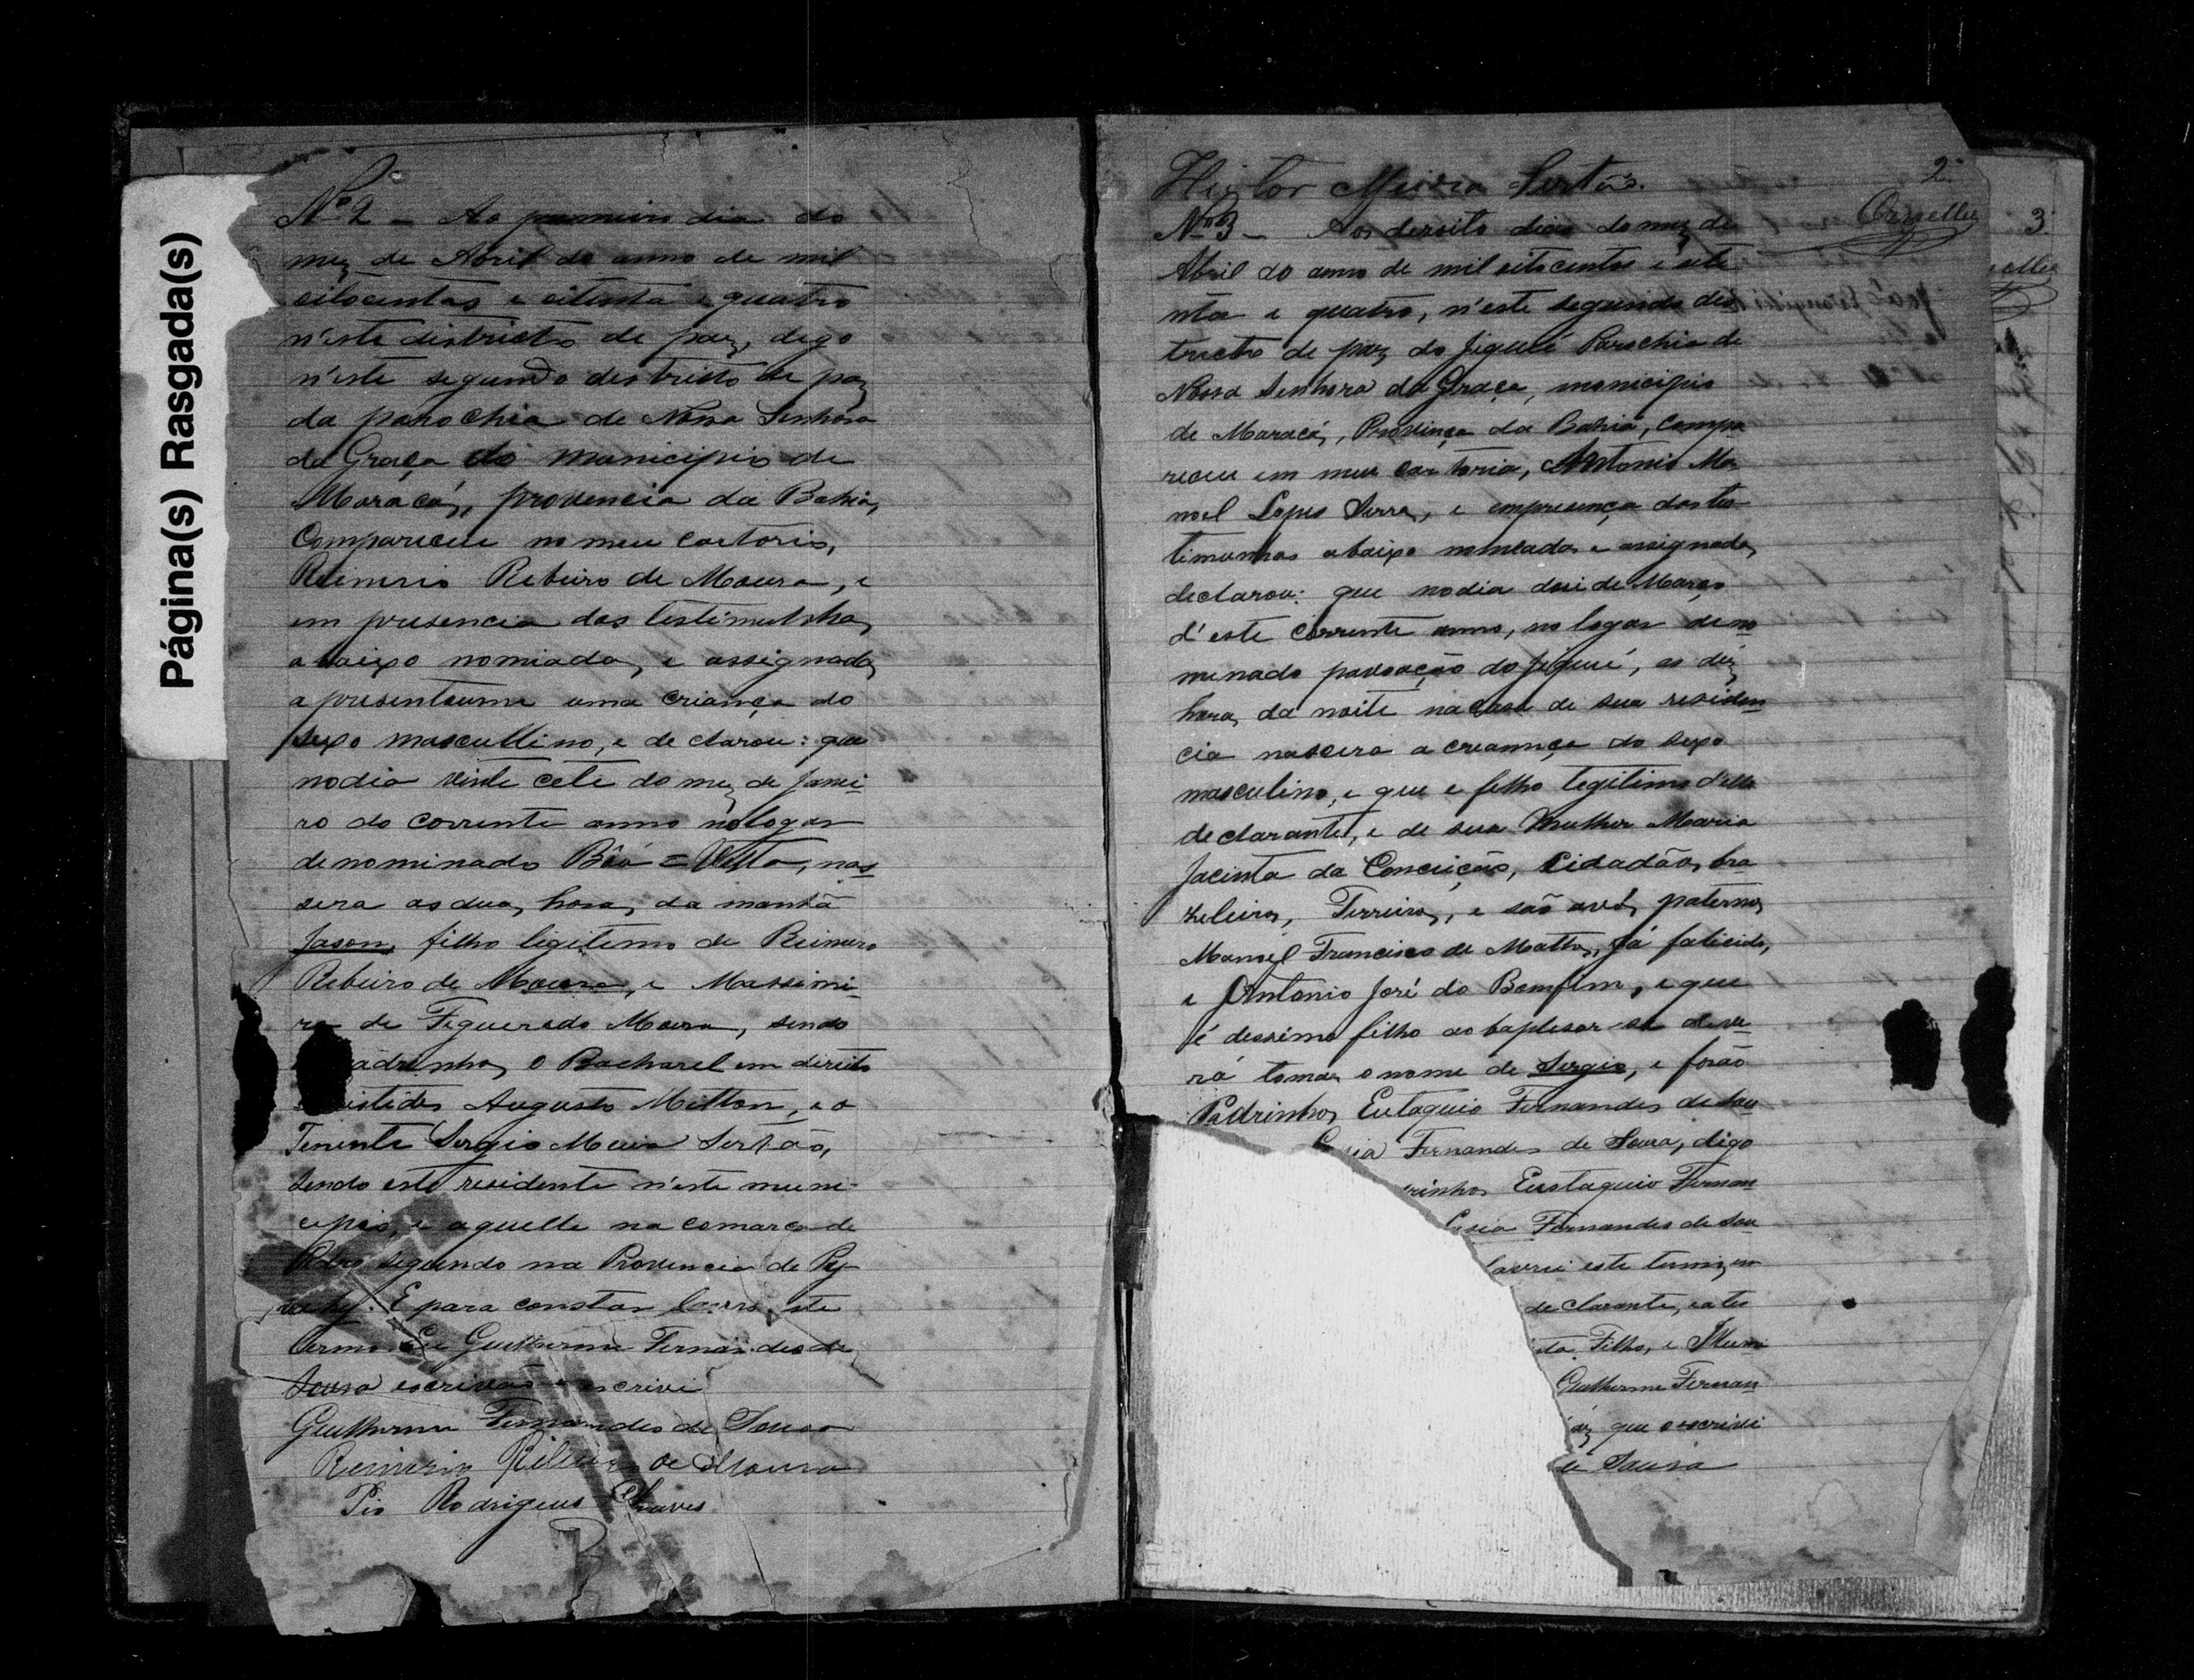 Página(s) Rasgada(s)
Nº 2 - Ao primeiro dia do
mez de Abril do anno de mil
oitocentos e oitenta e quatro
n'este districto de paz, digo
n'este segundo destricto de paz
da parochia de Nossa Senhora
da Graça do municipio de
Maracás, provencia da Bahia,
Compareceu no meu cartorio,
Reimerio Ribeiro de Moura, e
em presencia das testimunhas
abaixo nomiadas, e assignadas
apresentoume uma criança do
sexo mascullino, e declarou: que
no dia vinte cete do mez de Janei-
ro do corrente anno no logar
denominado Bôa = Vista, nas
sera as duas horas, da manhã
Jason, filho legitimo de Reimero
Ribeiro de Moura, e Massimi-
ra de Figueredo Moura, sendo
adrinhos, o Bacharel em direito
istides Augusto Milton, e o
Tenente Sergio Meira Sertão,
sendo este residente n'este muni-
cipio, e aquelle na comarca de
Pedro segundo na Provencia de
E para constar lavro este
termo. Eu Guilherme Fernandes de
Sousa escrivão escrivi
Guilherme Fernandes de Sousa
Reimerio Ribeiro de Moura
Pio Rodrigues Chaves
Heitor Meira Sertão.
2
Nº 3 - Aos desoito dias do mez de
3
Abril do anno de mil oitocentos e oite
nta e quatro, n'este segundo dis
tricto de paz do Jiquié Parochia de
Nossa Senhora da Graça, municipio
de Maracás, Provinça da Bahia, Compa
receu em meu cartorio, Antonio Ma
noel Lopes Serra, e empresença das tes
timunhas abaixo nomeadas e assignadas,
declarou: que no dia dosi de Março
d'este corrente anno, no logar deno
minado povoação do Jiquié, as déz
horas, da noite na casa de sua residen
cia nascera a creannça do sexo
masculino, e que e filho legitimo d'elle
declarante, e de sua Mulher Maria
Jacinta da Conceição, Cidadãos, bra
zeleiros, Ferreiro, e são avós, paternos
Manoel Francisco de Mattos, já falicido,
e Antonio José do Bomfim, e que
é dessimo filho ao baptisar-se deve
rá tomar o nome de Sergio, e forão
Padrinhos, Eutaquio Fernandes de Sou
Fernandes de Souza, digo
rinhos Eustaquio Fernan
Fernandes de Sou
lavrei este termo, em
declarante, e a tes
Filho, e
Guilherme Fernan
que o escrivi
Sousa